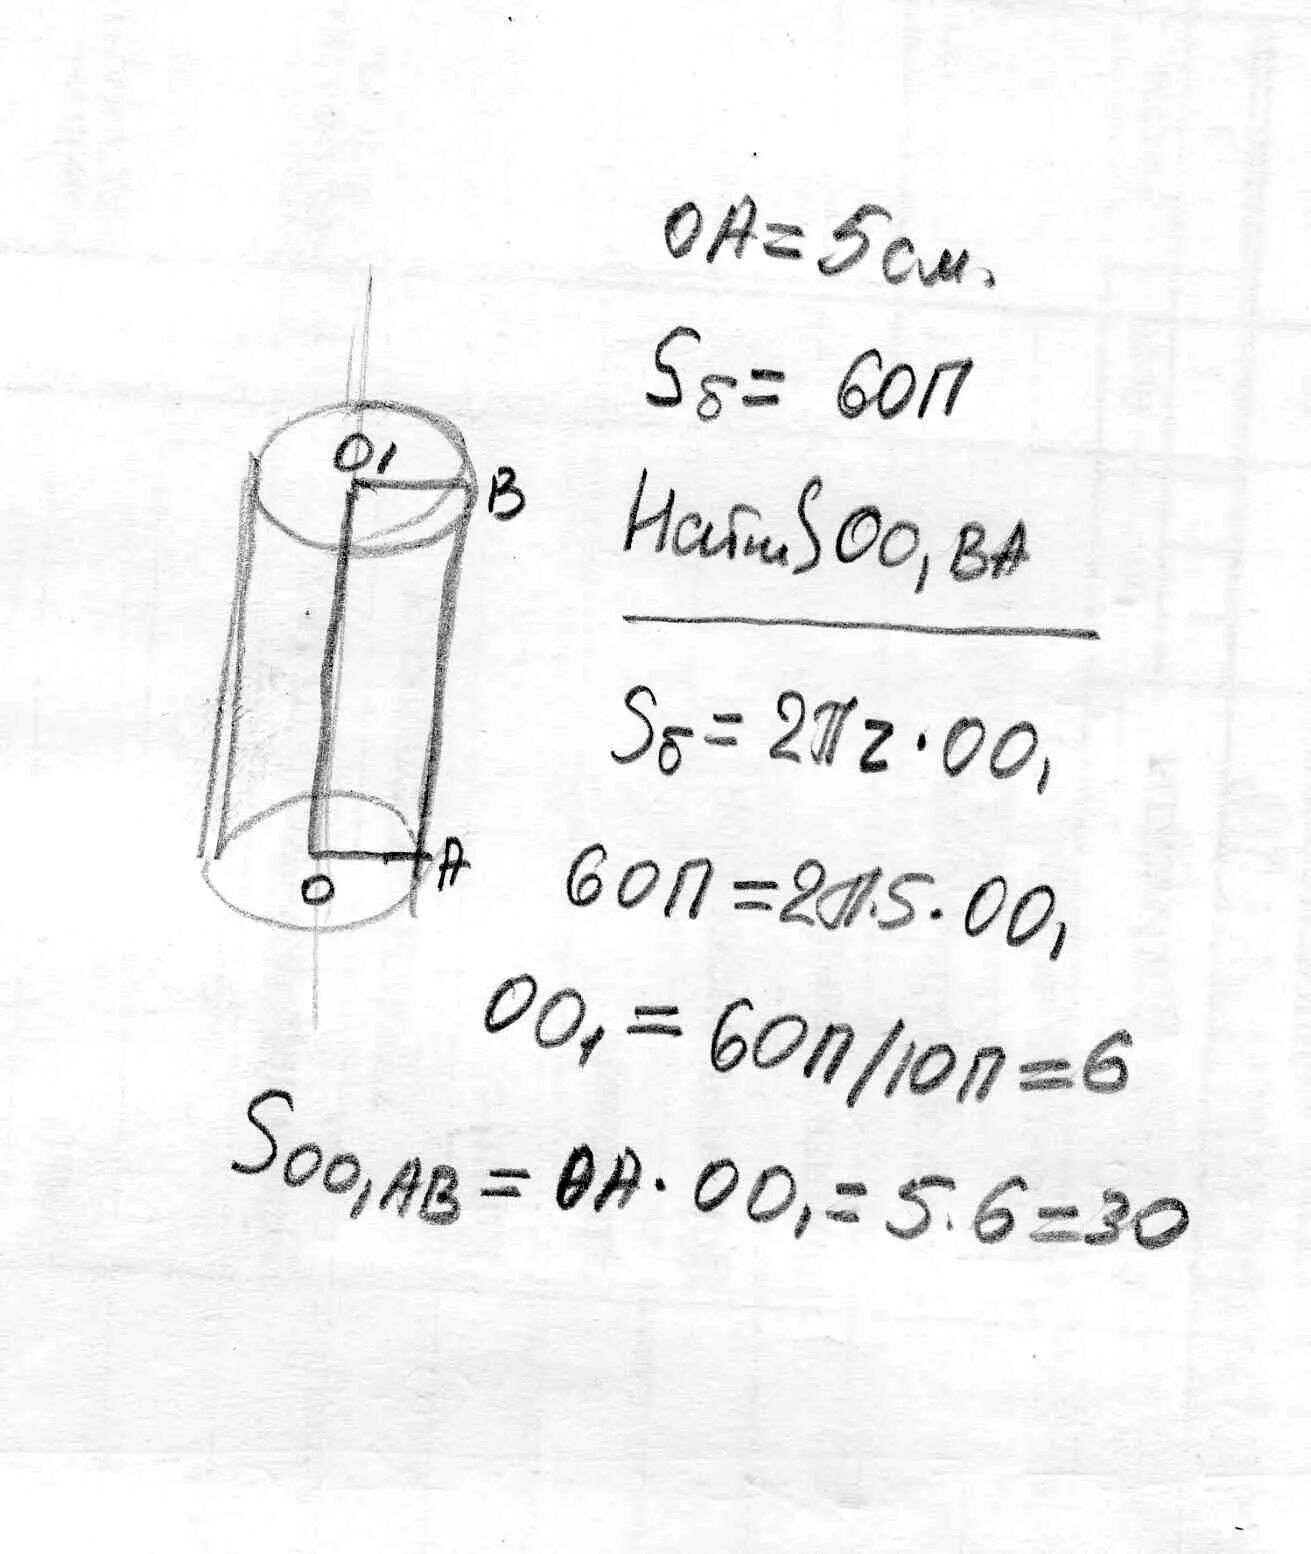 OA = 5 см.
Sб = 60П
Найти S OO₁BA
Sб = 2πr · OO₁
60П = 2π·5 · OO₁
OO₁ = 60П/10П = 6
SOO₁AB = OA · OO₁ = 5 · 6 = 30
O₁
B
A
O